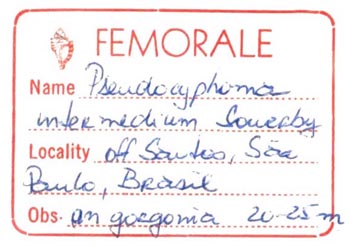 FEMORALE
Name Pseudocyphoma
intermedium Sowerby
Locality off Santos, São
Paulo, Brasil
Obs. on gorgonia 20-25m